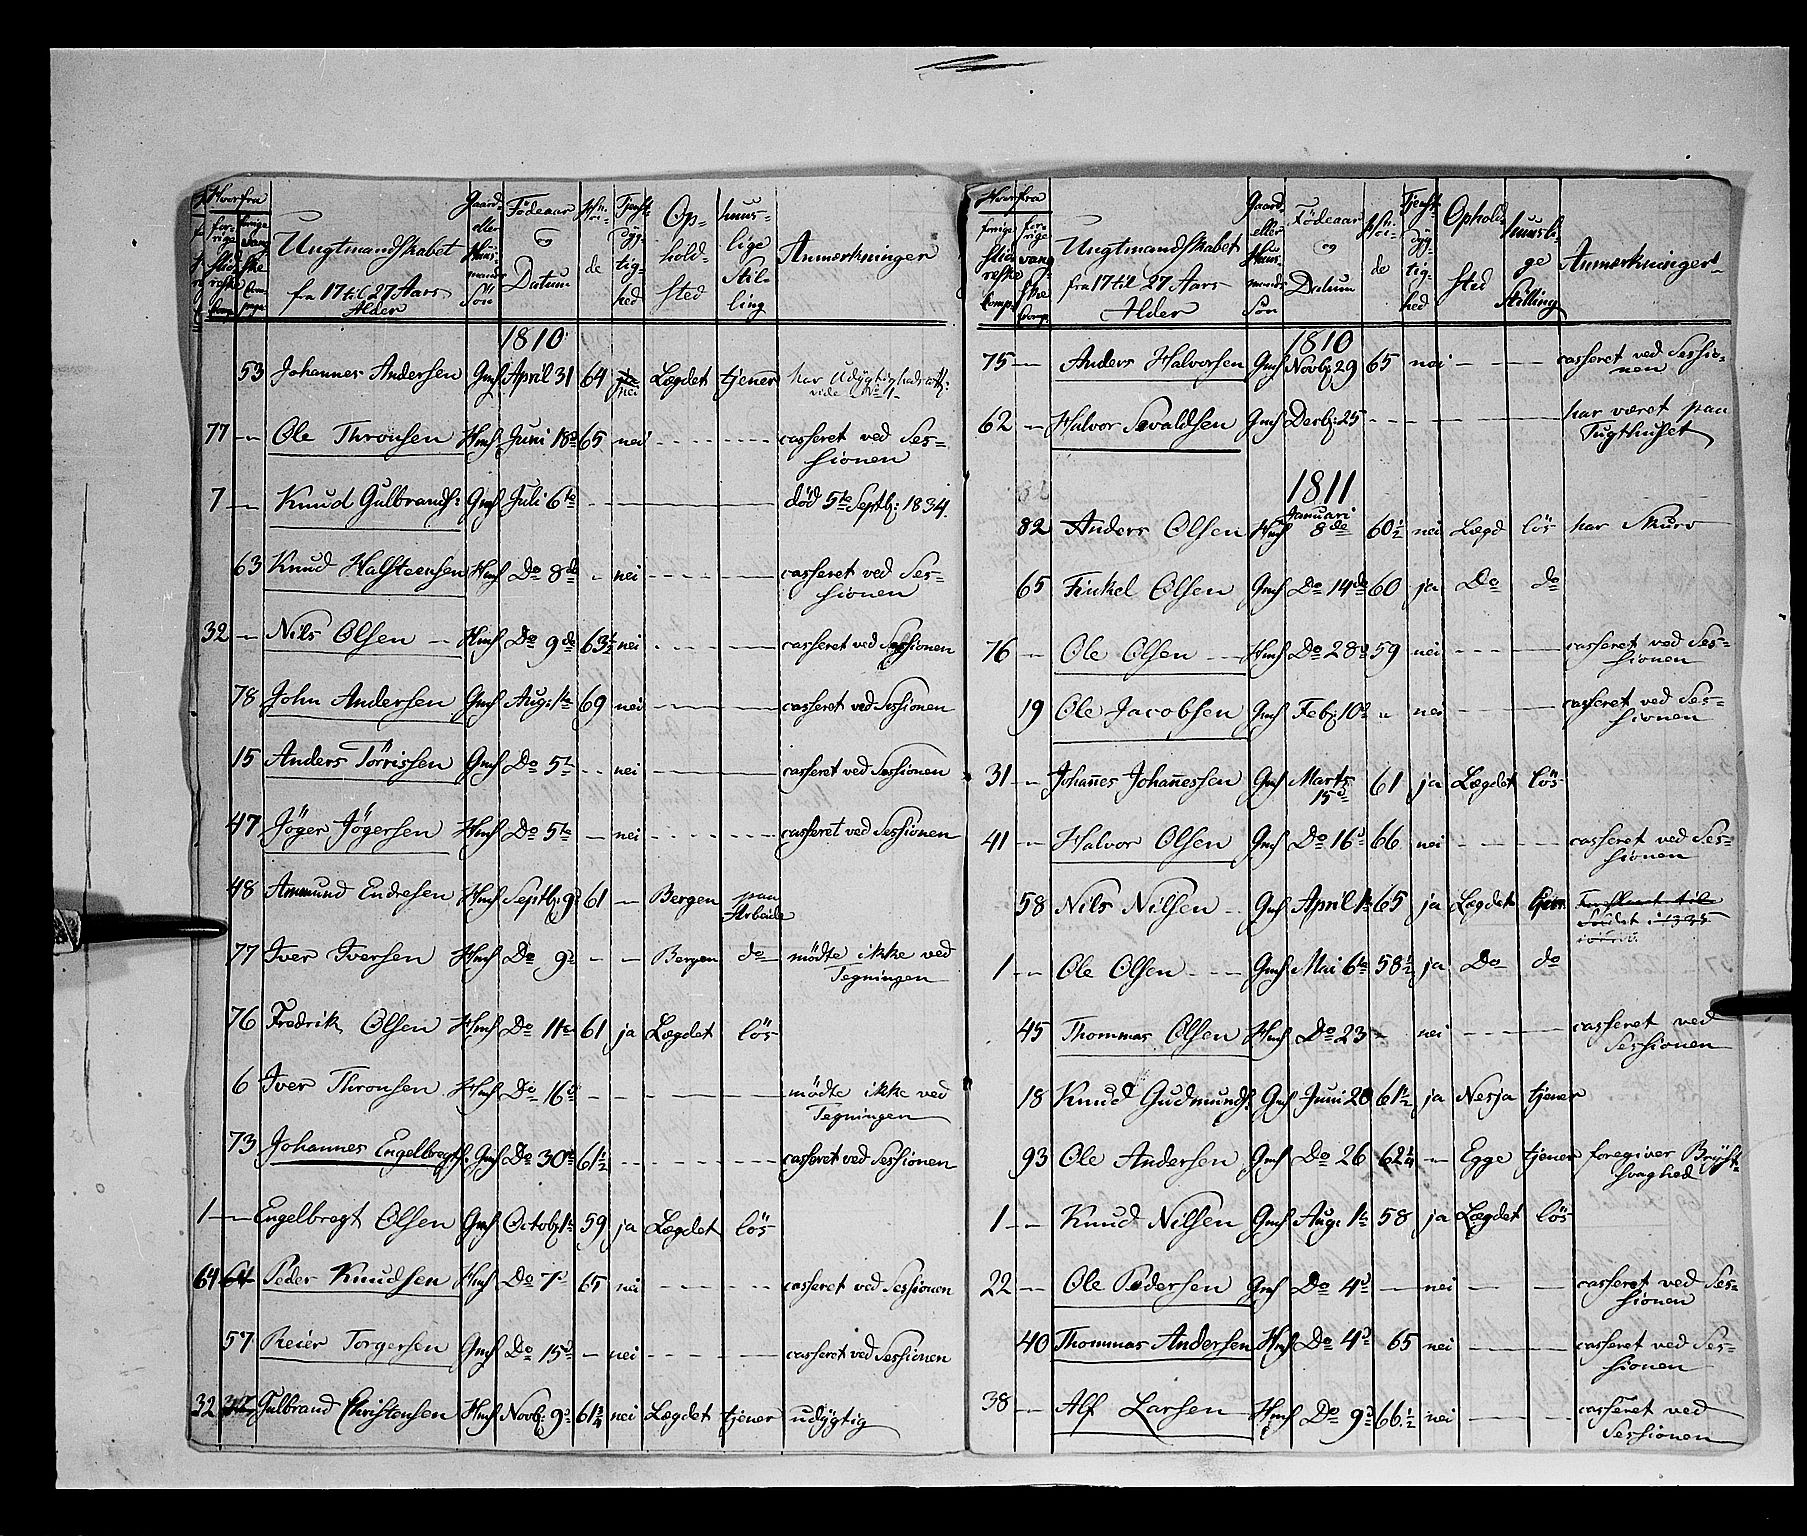 Hvorfra
forrige Slidreske Comp:
forrige Vangske Compagni
Ungtmandskabet fra 17 til 27 Aars Alder
Gaard- eller Huusmands Søn
Fødeaar og Datum
Høide
Tjenstdygtighed
Opholdsted
huuslige Stilling
Anmærkninger
1810
53 Johannes Andersen Gms April 31 64 nei Lægdet tjener har Udygtigheds
77 — Ole Thronsen Hms Juni 18d 65 nei casseret ved Sessionen
7 — Knud Gulbrands: Gms Juli 6te død 5te Septb: 1834.
63 Knud Halsteensen Hms Do 8de - nei casseret ved Sessionen
32 — Nils Olsen Hms Do 9de 63½ nei casseret ved Sessionen
78 John Andersen Gms Aug: 1te 69 nei casseret ved Sessionen
15 Anders Törrissen Gms Do 5te - nei casseret ved Sessionen
47 Jöger Jögersen Hms Do 5te — nei casseret ved Sessionen
48 Ammund Endresen Hms Septb: 9d 61 — Bergen paa Arbeide
77 Iver Iversen Hms Do 9d - - Bergen do mödte ikke ved Tegningen
76 Fredrik Olsen Hms Do 11te 61 ja Lægdet lös
6 Iver Thronsen Hms Do 16d mödte ikke ved Tegningen
73 Johannes Engelbregts. Gms Do 30te 61½ casseret ved Sessionen
1 — Engelbregt Olsen Gms Octob: 1te 59 ja Lægdet lös
64 64 Peder Knudsen Hms Do 7d 65 nei casseret ved Sessionen
57 Reier Torgersen Gms Do 15d — nei casseret ved Sessionen
32 Gulbrand Christensen Hms Novb: 9d 61¾ nei Lægdet tjener udygtig
Hvorfra
forrige Slidreske Comp:
forrige Vangske Comp.
Ungtmandskabet fra 17 til 27 Aars Alder
Gaard- eller Huusmands Søn
Fødeaar og Datum
Høide
Tjenstdygtighed
Opholdsted
huuslige Stilling
Anmærkninger
1810
75 — Anders Halvorsen Gms Novb: 29 65 nei casseret ved Sessionen
62 — Halvor Sevaldsen Gms Decbr: 25 har været paa Tugthuset
1811
82 Anders Olsen Hms Januari 8de 60½ nei Lægd lös har Skurv
65 Finkel Olsen Gms Do 14de 60 ja Do do
76 — Ole Olsen Hms Do 28d 59 nei casseret ved Sessionen
19 Ole Jacobsen Gms Feb: 10d " nei casseret ved Sessionen
31 — Johannes Johannessen Gms Marts 15d 61 ja Lægdet lös
41 — Halvor Olsen Gms Do 16d 66 nei casseret ved Sessionen
58 Nils Nilsen Gms April 1te 65 ja Lægdet tjen.
1 — Ole Olsen Gms Mai 6te 58½ ja Do do
45 Thommas Olsen Hms Do 23 - nei casseret ved Sessionen
18 Knud Gudmunds. Gms Juni 20 61½ ja Nesja tjener
93 Ole Andersen Gms Do 26 62¼ — Egge tjener foregiver Brystsvaghed
1 — Knud Nilsen Gms Aug: 1te 58 ja Lægdet lös
22 — Ole Pedersen Gms Do 4d — nei casseret ved Sessionen
40 Thommas Andersen Hms Do 4d 65 nei casseret ved Sessionen
38 — Alf Larsen Hms Do 9d 66½ nei casseret ved Sessionen